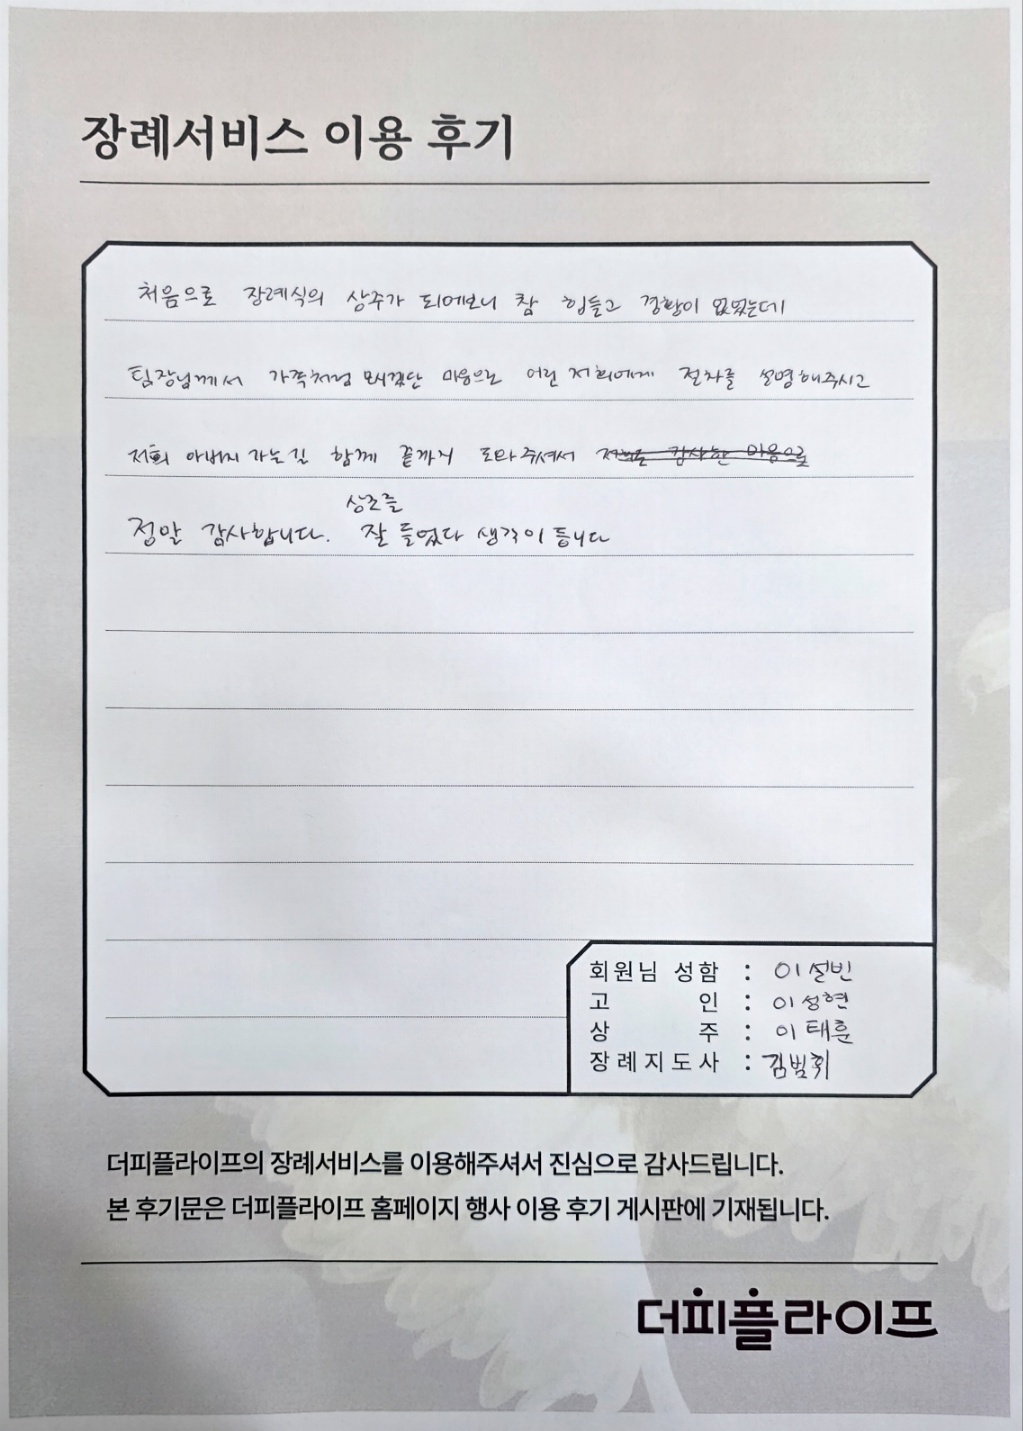 장례서비스 이용 후기
처음으로 장례식의 상주가 되어보니 참 힘들고 경황이 없었는데
팀장님께서 가족처럼 모시겠단 마음으로 어린 저희에게 절차를 설명해주시고
저희 아버지 가는길 함께 끝까지 도와주셔서 저희는 감사한 마음으로
상조를
정말 감사합니다. 잘 들었다 생각이 듭니다
회원님 성함 : 이설빈
고 인 : 이성현
상 주 : 이태훈
장례지도사 : 김범휘
더피플라이프의 장례서비스를 이용해주셔서 진심으로 감사드립니다.
본 후기문은 더피플라이프 홈페이지 행사 이용 후기 게시판에 기재됩니다.
더피플라이프